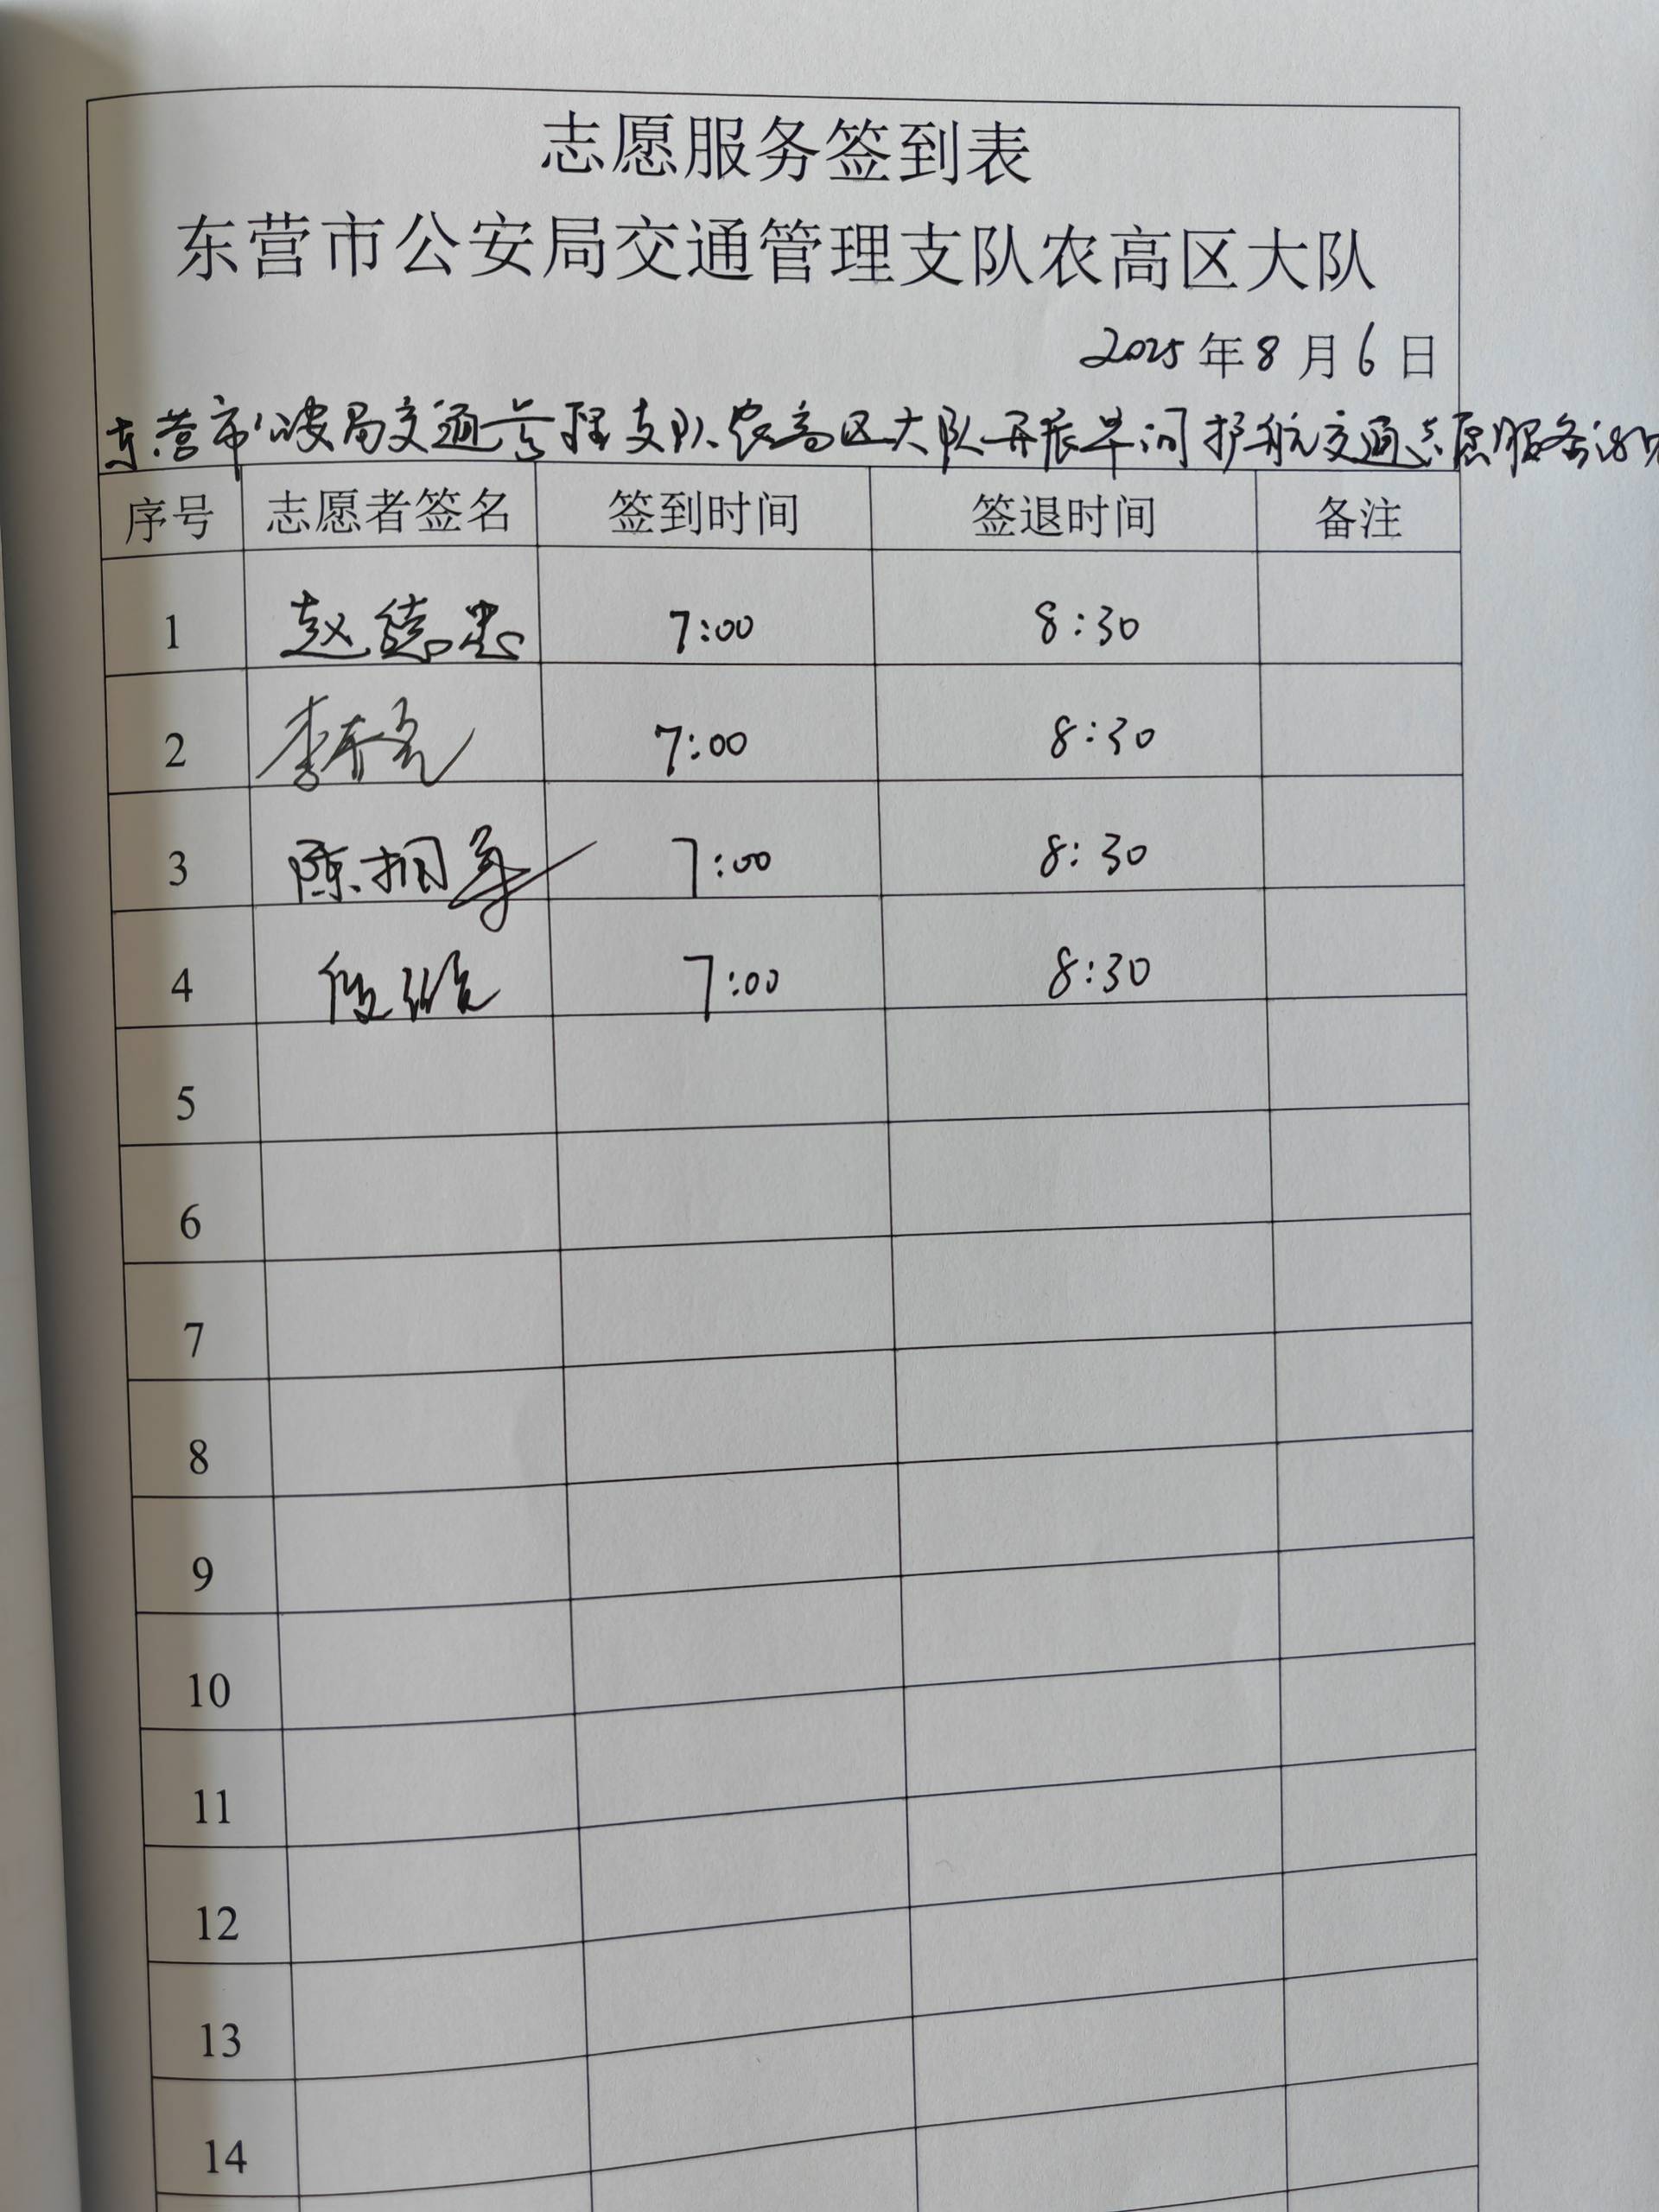 志愿服务签到表
东营市公安局交通管理支队农高区大队
2025年8月6日
东营市公安局交通管理支队农高区大队开展早间护航交通志愿服务活动
序号 志愿者签名 签到时间 签退时间 备注
1 赵德忠 7:00 8:30
2 李 7:00 8:30
3 陈 7:00 8:30
4 7:00 8:30
5
6
7
8
9
10
11
12
13
14